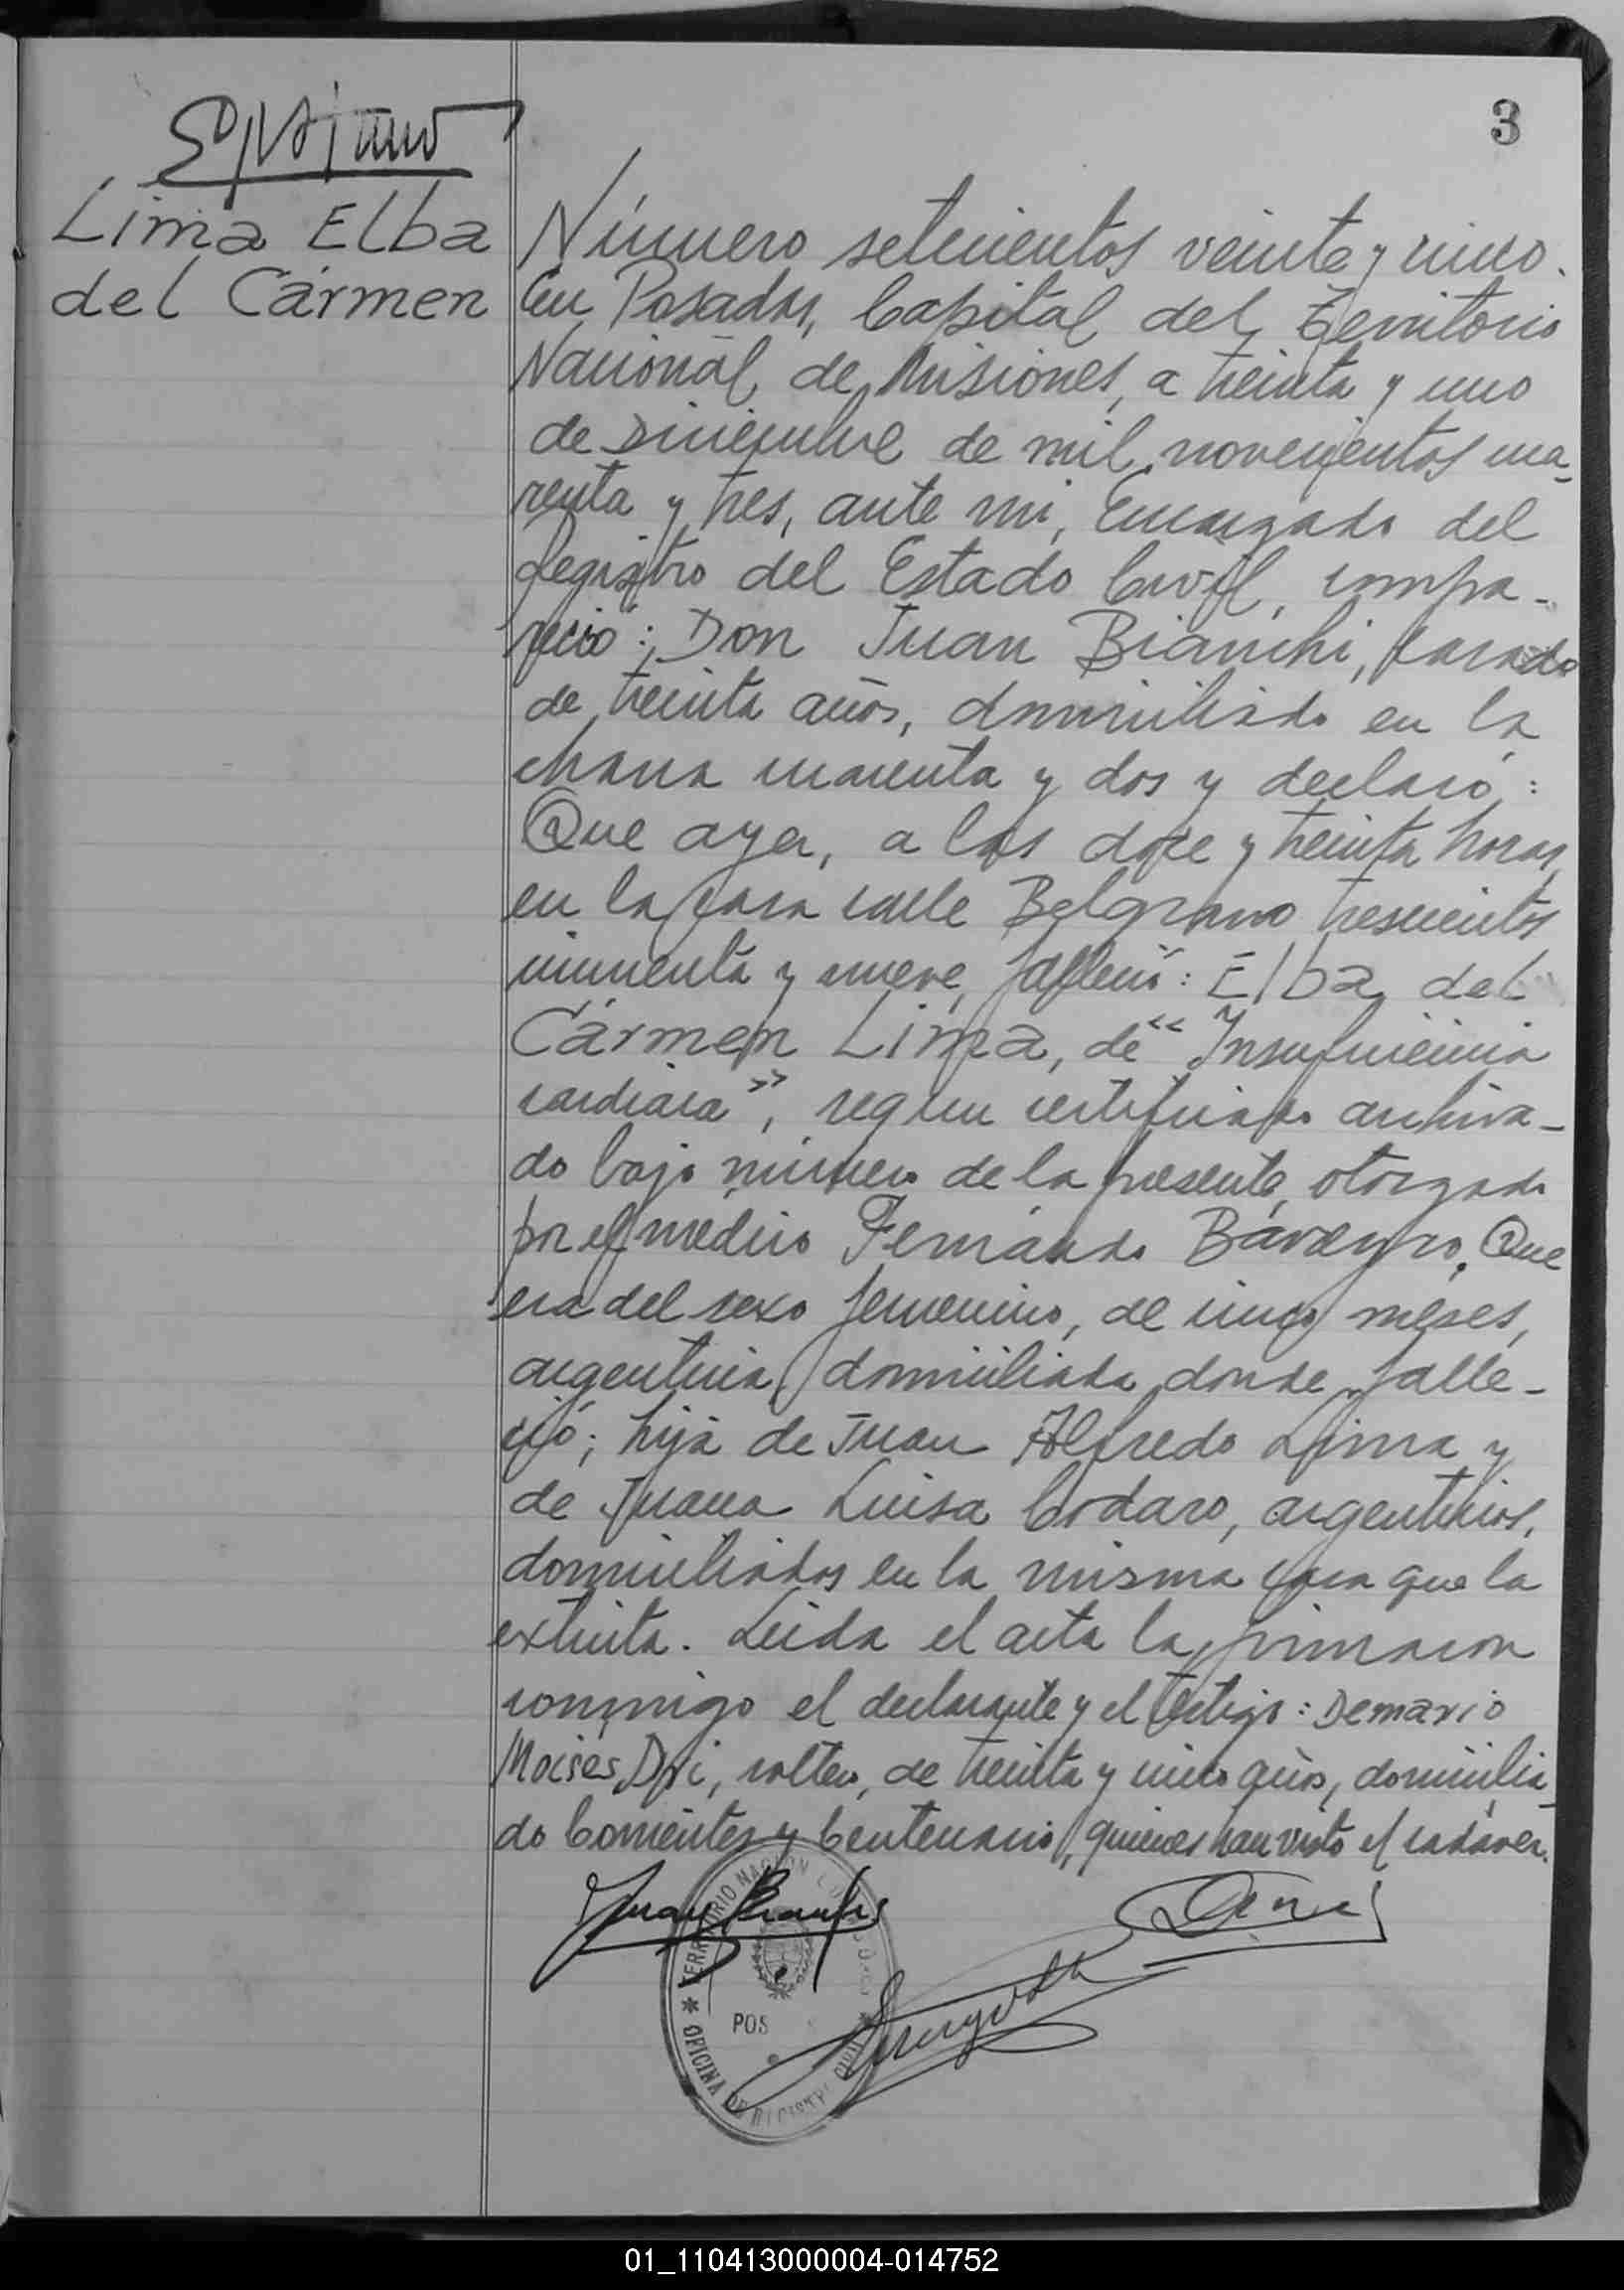 3
Lima Elba
del Cármen
Número setecientos veinte y cinco.
En Posadas, Capital del Territorio
Nacional de Misiones, a treinta y uno
de Diciembre de mil novecientos cua-
renta y tres, ante mi, Encargado del
Registro del Estado Civil, compa-
reció: Don Juan Bianchi, casado
de treinta años, domiciliado en la
chacra cuarenta y dos y declaró:
Que ayer, a las doce y treinta horas,
en la casa calle Belgrano trescientos
cincuenta y nueve, falleció: Elba del
Cármen Lima, de "Insuficiencia
cardiaca", segun certificado archiva-
do bajo número de la presente, otorgado
por el médico Fernando Bárreyro. Que
era del sexo femenino, de cinco meses,
argentina, domiciliada donde falle-
ció; hija de Juan Alfredo Lima y
de Juana Luisa Codaro, argentinos,
domiciliados en la misma casa que la
extinta. Leida el acta la firmaron
conmigo el declarante y el testigo: Demario
Moises Dri, soltero, de treinta y cinco años, domicilia-
do Corrientes y Centenario, quienes han visto el cadáver.
Juan Bianchi
TERRITORIO NACION
POS
OFICINA DE REGISTRO CIVIL
01_110413000004-014752